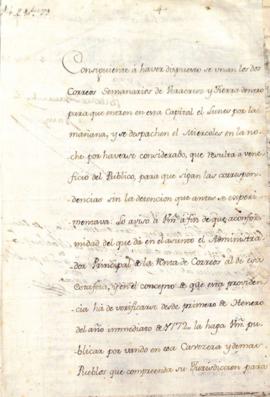 4
Consiguiente à haver dispuesto se unan los dos
Correos Semanarios de Veracruz y Tierradentro
para que entren en esta Capital el Lunes por la
mañana, y se despachen el Miercoles en la no-
che por haverse considerado, que resulta a vene-
ficio del Publico, para que sigan las correspon-
dencias sin la detencion que antes se experi-
mentava: Lo aviso à Vm. à fin de que aconfor-
midad del que dà en el asunto el Administra-
dor Principal de la Renta de Correos al de esa
Estafeta, y en el concepto de que esta providen-
cia hà de verificarse desde primero de Henero
del año immediato de 1772. la haga Vm. pu-
blicar por vando en esa Cavezera y demas
Pueblos que comprenda su Jurisdiccion para